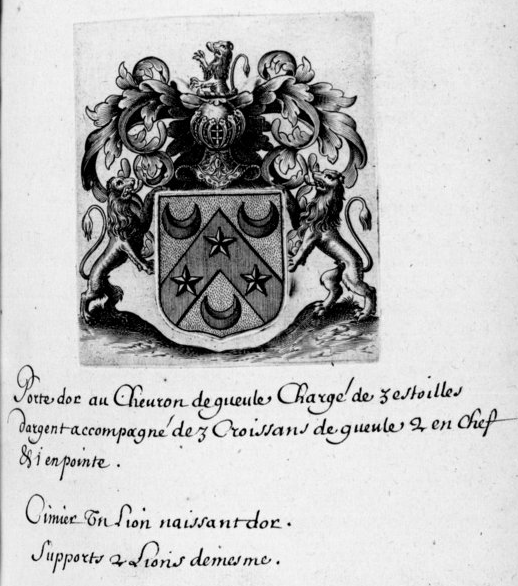 Porte dor au Cheuron de gueule Chargé de 3 estoilles
dargent accompagné de 3 Croissans de gueule 2 en Chef
& 1 en pointe.
Cimier Vn Lion naissant dor.
Supports 2 Lions de mesme.